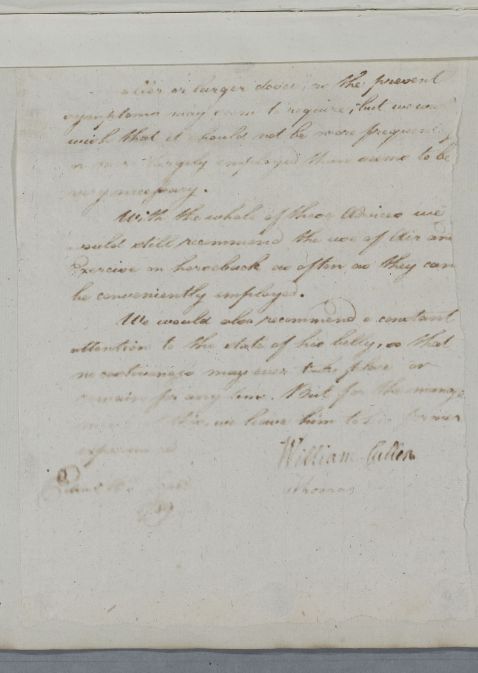 or larger doses, as the present
symptoms may seem to require; but we would
wish that it should not be more frequently
or more largely employed than seems to be
very necessary.
With the whole of these Advices we
would still recommend the use of Air and
Exercise on horseback as often as they can
be conveniently employed.
We would also recommend a constant
attention to the state of his belly, so that
no costiveness may ever take place or
remain for any time. But for the manage
ment of this, we leave him to his former
experience
William Cullen
Thomas